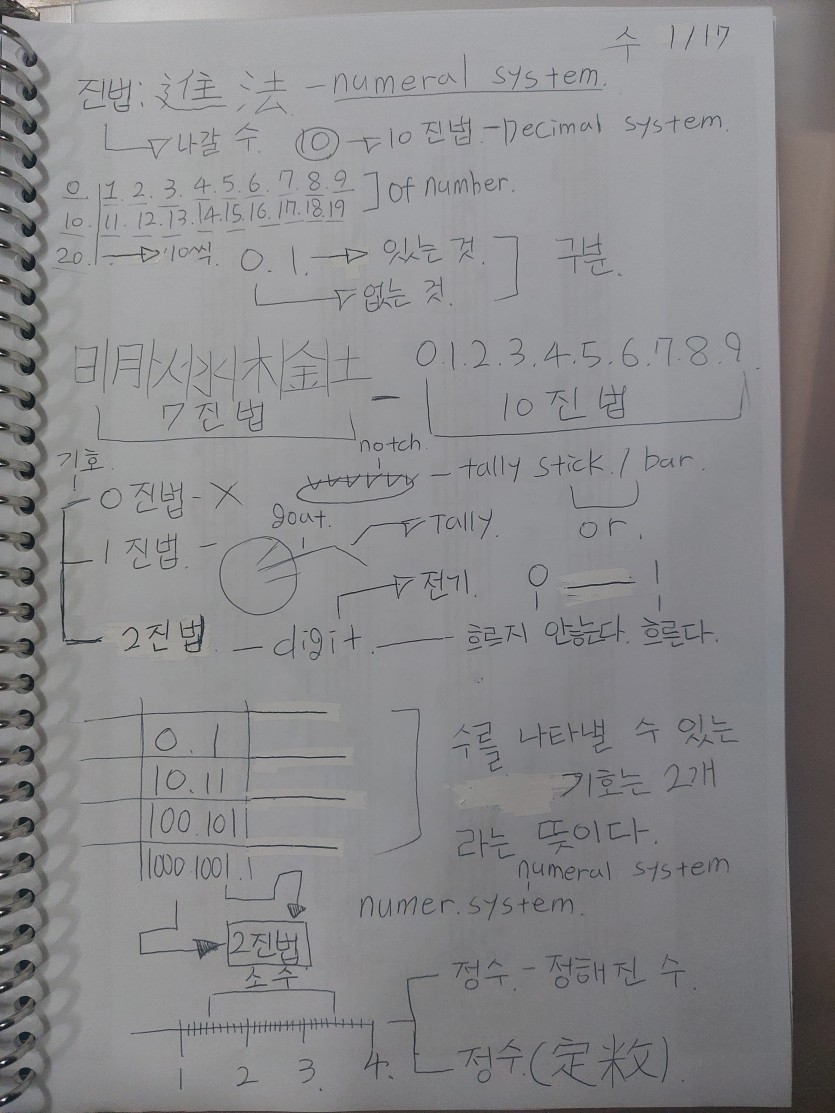 수 1/17
진법: 進 法 - numeral system.
나갈 수. ⑩ → 10 진법 - Decimal system.
0. 1. 2. 3. 4. 5. 6. 7. 8. 9
of number.
10. 11. 12. 13. 14. 15. 16. 17. 18. 19
20. → 10씩. 0. 1. → 있는 것.
구분.
없는 것.
月 水 木 金 土 - 0. 1. 2. 3. 4. 5. 6. 7. 8. 9.
7 진 법 10 진 법
기호. notch.
0 진법 - X - tally stick. / bar.
gout. Tally. or.
1 진법. -
전기. 0 — 1
2진법. - digit. — 흐르지 않는다. 흐른다.
0. 1
수를 나타낼 수 있는
10. 11
기호는 2개
100. 101
라는 뜻이다.
1000. 1001.
numeral system
numer. system.
2진법
소수
정수. - 정해진 수.
1 2 3. 4.
정수. (定数).